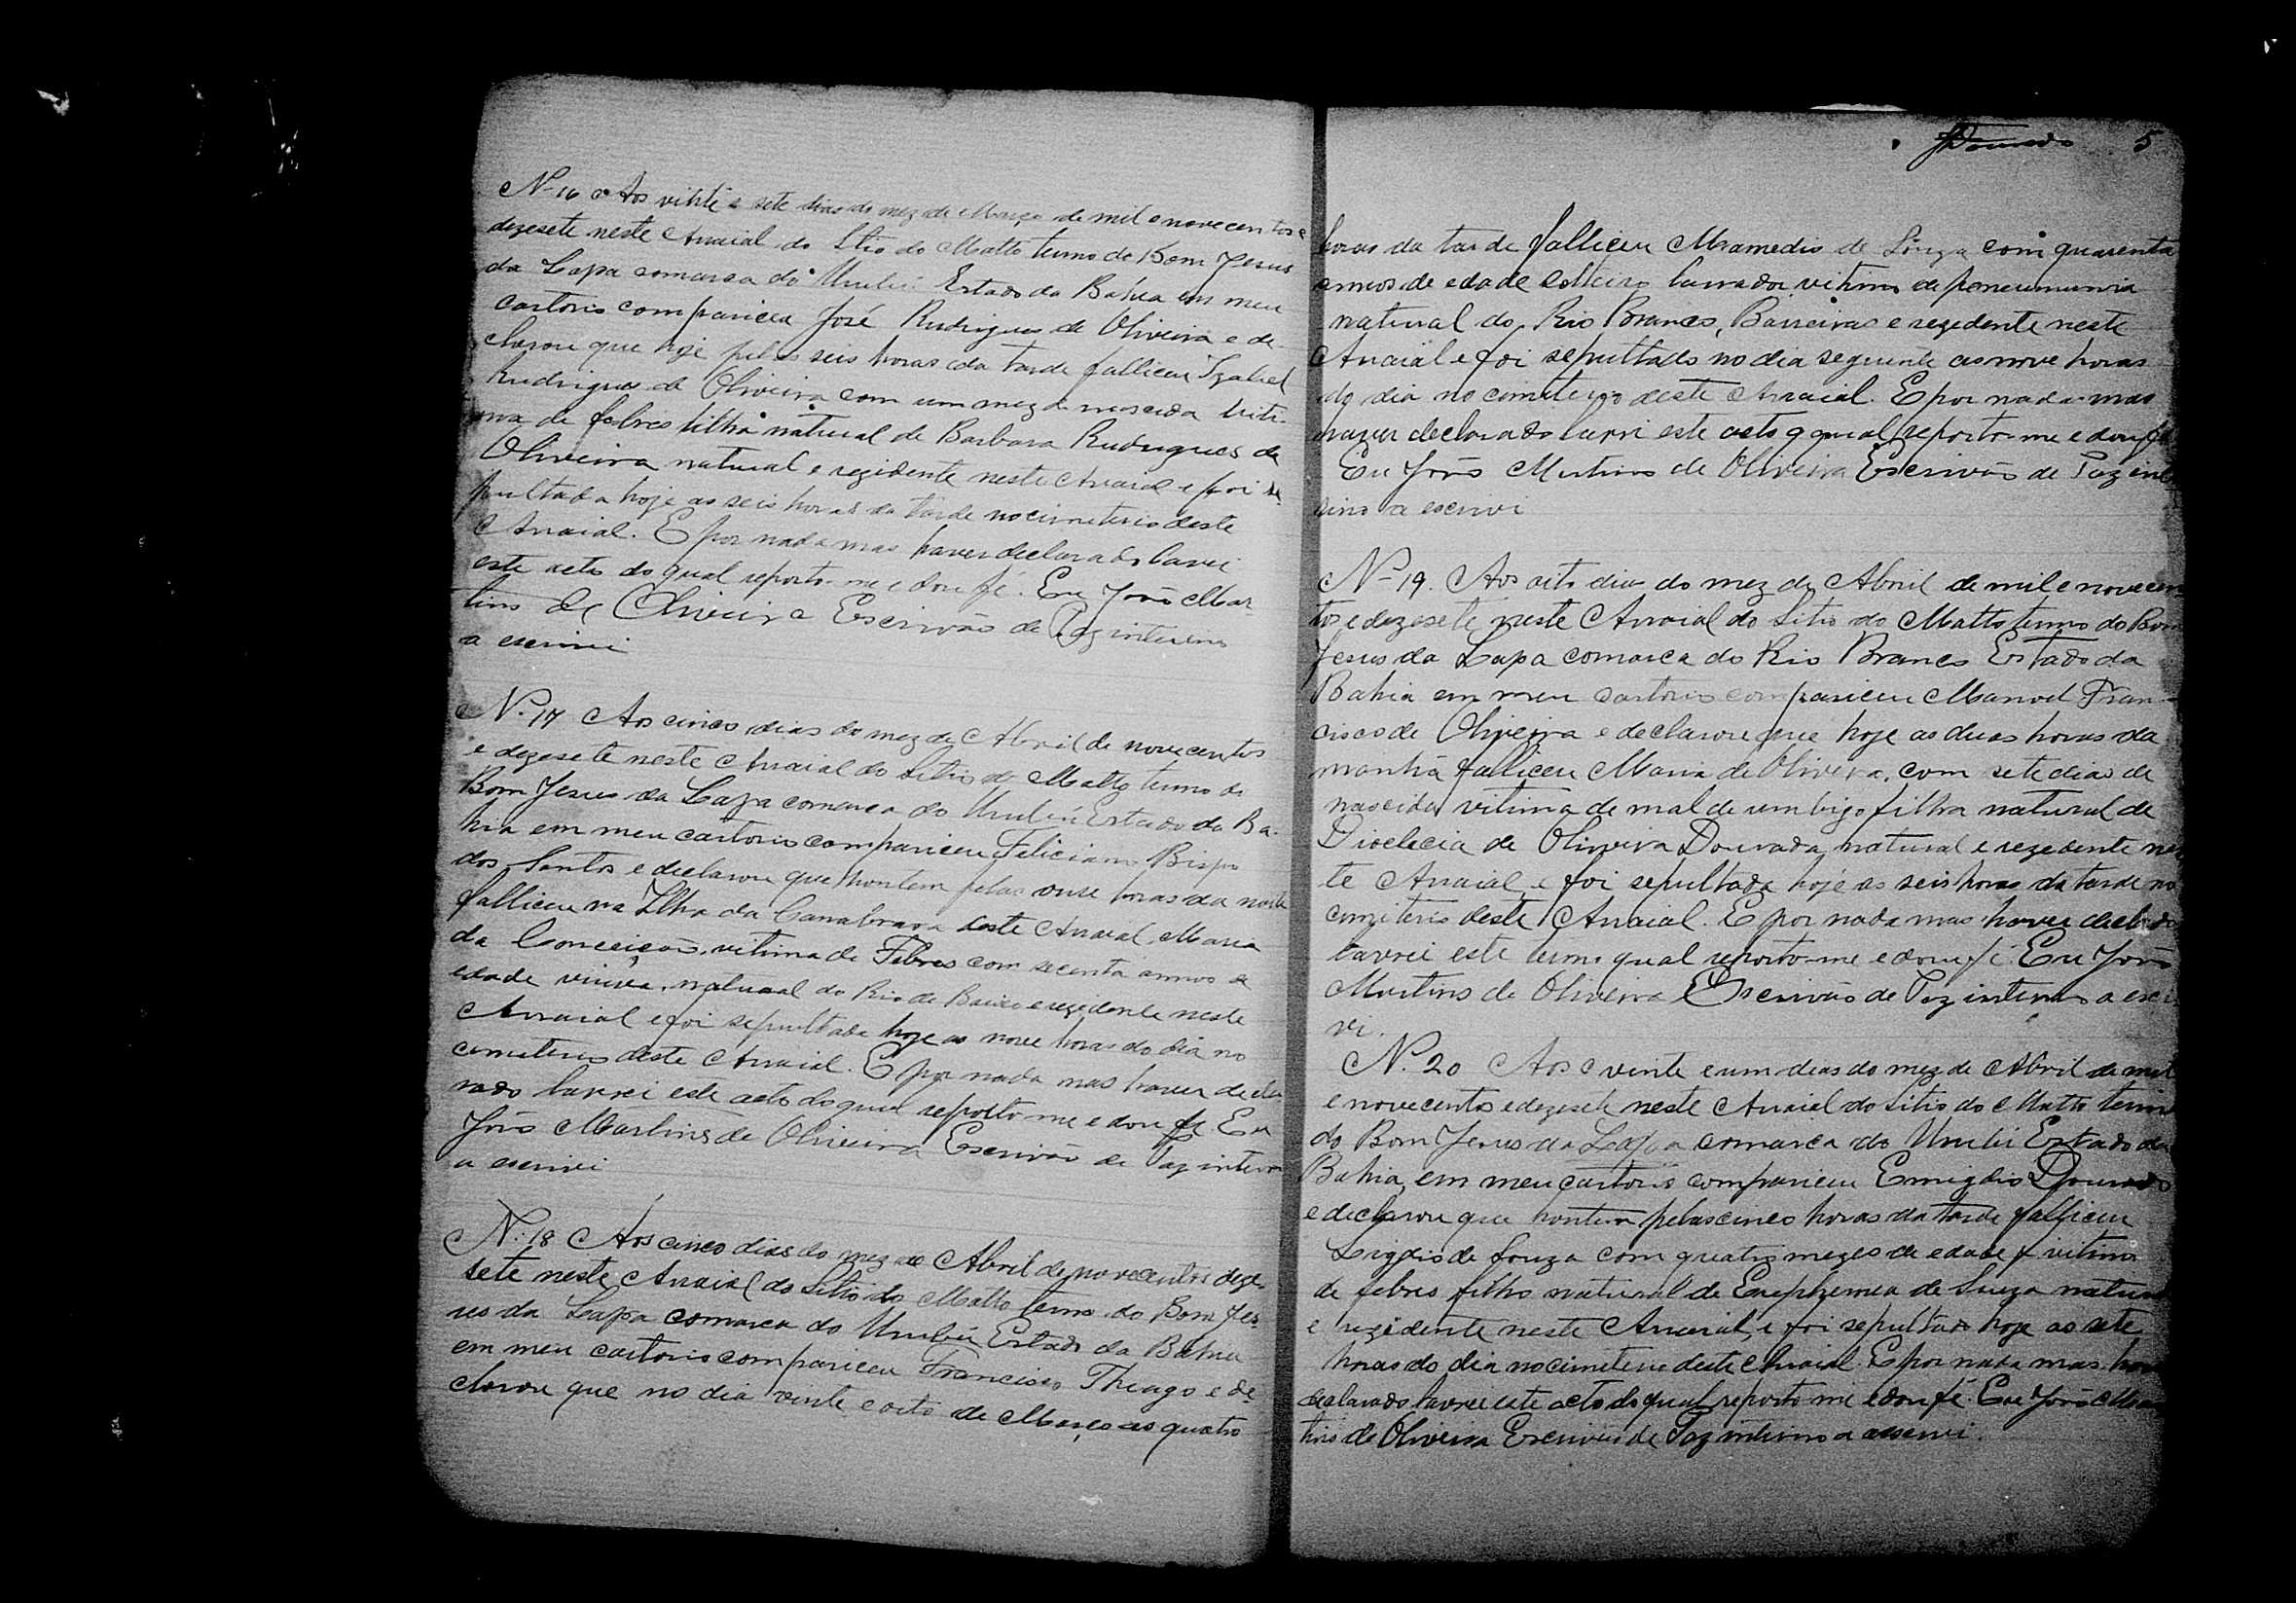 Nº 16 Aos vinte e sete dias do mez de Março de mil e novecentos e
dezesete neste Arraial do Sitio do Matto termo do Bom Jesus
da Lapa comarca do Urubú Estado da Bahia em meu
cartorio compariceu José Rudrigues de Oliveira e de-
clarou que hoje pelas seis horas da tarde falliceu Izabel
Rudrigues de Oliveira com um mez de nascida viti-
ma de febres filha natural de Barbara Rudrigues de
Oliveira natural e rezidente neste Arraial e foi se
pultada hoje as seis horas da tarde no cimeterio deste
Arraial. E por nada mas haver declarado lavrei
este acto do qual reporto-me e dou fé. Eu João Mar
tins de Oliveira Escrivão de Paz interino
a escrivi
Nº 17 Aos cinco dias do mez de Abril de novecentos
e dezesete neste Arraial do Sitio do Matto termo do
Bom Jesus da Lapa comarca do Urubú Estado da Ba-
hia em meu cartorio compariceu Feliciano Bispo
dos Santos e declarou que hontem pelas onse horas da noite
falliceu na Ilha da Canabrava deste Arraial Maria
da Conceição, vitima de Febres com secenta annos de
edade viuva, natural do Rio de Baixo e rezidente neste
Arraial e foi sepultada hoje as nove horas do dia no
cimeterio deste Arraial. E por nada mas haver decla
rado lavrei este acto do qual reporto me e dou fé Eu
João Martins de Oliveira Escrivão de Paz interino
a escrivi
Nº 18 Aos cinco dias do mez de Abril de novecentos deze
sete neste Arraial do Sitio do Matto termo do Bom Jes-
us da Lapa comarca do Urubú Estado da Bahia
em meu cartorio compariceu Francisco Thiago e de-
clarou que no dia vinte e oito de Março as quatro
5
horas da tarde falliceu Mamedio de Souza com quarenta
annos de edade solteiro lavrador vitima de poneumunia
natural do Rio Branco, Barreiras e rezidente neste
Arraial e foi sepultado no dia seguinte as nove horas
do dia no cimiterio deste Arraial. E por nada mas
haver declarado lavri este acto q qual reporto-me e dou fé
Eu João Martins de Oliveira Escrivão de Paz inte
rino a escrivi
Nº 19. Aos oito dias do mez de Abril de mil e novecen
tos e dezesete neste Arraial do Sitio do Matto termo do Bom
Jesus da Lapa comarca do Rio Branco Estado da
Bahia em meu cartorio compariceu Manoel Fran-
cisco de Oliveira e declarou que hoje as duas horas da
manhã falliceu Maria de Olivera, com sete dias de
nascida vitima de mal de umbigo filha natural de
Dioclecia de Oliveira Dourada natural e rezedente nes
te Arraial, e foi sepultada hoje as seis horas da tarde no
cimiterio deste Arraial. E por nada mas haver declarado
lavrei este termo qual reporto-me e dou fé. Eu João
Martins de Oliveira Escrivão de Paz interino a escri
vi.
Nº 20 Aos vinte e um dias do mez de Abril de mil
e novecentos e dezesete neste Arraial do Sitio do Matto termo
do Bom Jesus da Lapa comarca do Urubú Estado da
Bahia, em meu cartorio compariceu Emigdio Dourado
e declarou que hontem pelas cinco horas da tarde falliceu
de Souza com quatro mezes de edade vitima
de febres filho natural de Euphemia de Souza natural
e rezidente neste Arraial, e foi sepultado hoje as sete
horas do dia no cimeterio deste Arraial. E por nada mas haver
declarado lavrei este acto do qual reporto me e dou fé. Eu João Mar
tins de Oliveira Escrivão de Paz interino a escrivi.